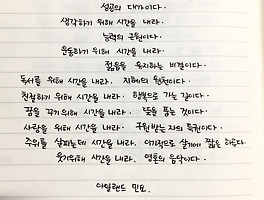 성공의 대가이다.
생각하기 위해 시간을 내라.
능력의 근원이다.
운동하기 위해 시간을 내라.
젊음을 유지하는 비결이다.
독서를 위해 시간을 내라. 지혜의 원천이다.
친절하기 위해 시간을 내라. 행복으로 가는 길이다.
꿈을 꾸기 위해 시간을 내라. 뜻을 품는 것이다.
사랑을 위해 시간을 내라. 구원받는 자의 특권이다.
주위를 살피는데 시간을 내라. 이기적으로 살기에 짧은 하루다.
웃기위해 시간을 내라. 영혼의 음악이다.
아일랜드 민요.